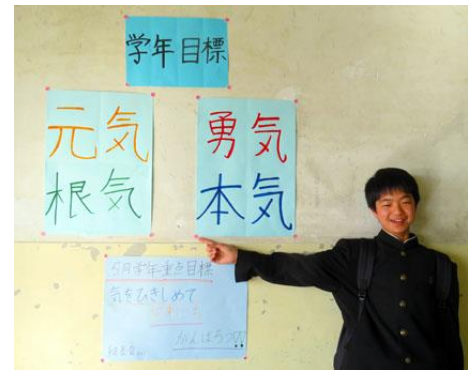 学年目標
元気
根気
勇気
本気
5月学年重点目標
気をひきしめて
がんばろう!!